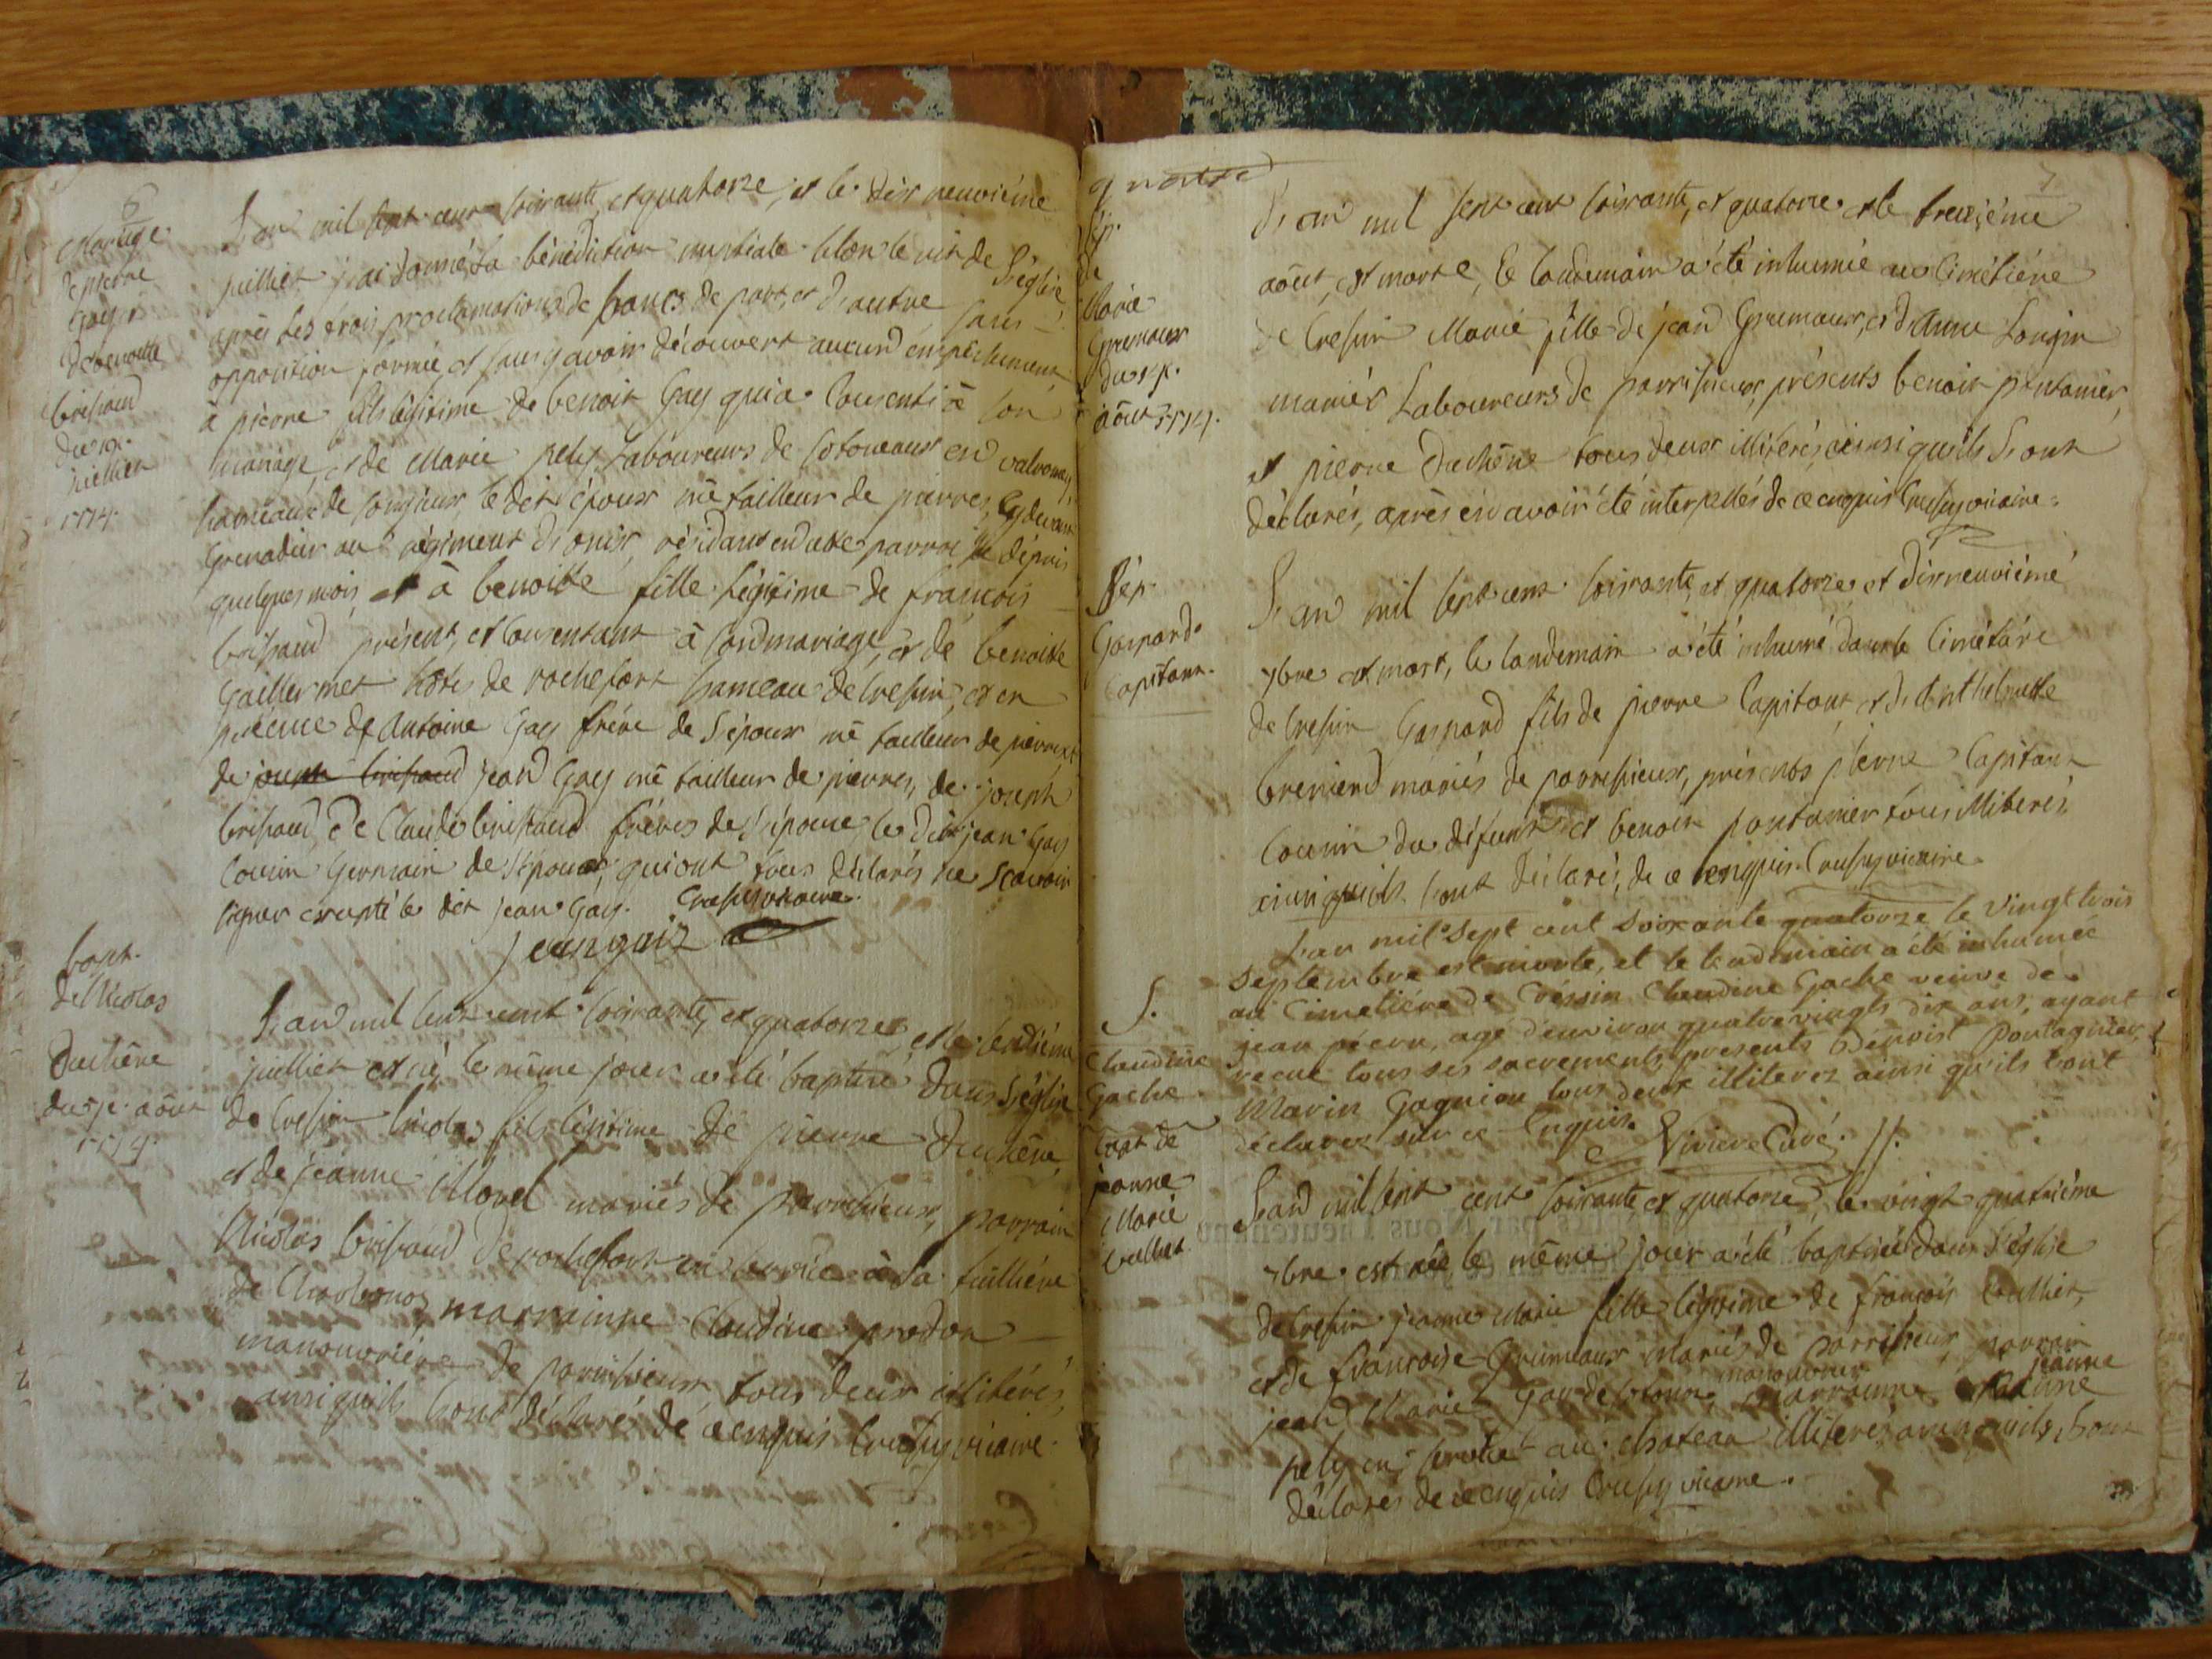 6
mariage
de pierre
Gay, &
de benoitte
brissaud
du 19.
juilliet
1774.
L'an mil sept cent soixante, et quatorze, et le dix neuvième
juilliet j'ai donné la bénédiction nuptiale selon le rit de l'église
après les trois proclamations de bancs de part, et d'autre sans
opposition formée, et sans y avoir découvert aucun empêchement
à pierre fils légitime de benoit Gay qui a consenti à son
mariage, et de Marie pely Laboureurs de sotoneaux en valromey,
hameaux de songieux, le dit époux mê tailleur de pierres, cy devant
Grenadier au régiment d'onix, résidant en cette parroisse dépuis
quelques mois, et à benoitte fille légitime de francois
brissaud présent, et consentant à son mariage, et de benoitte
Gaillermet hôtes de rochefort hameau de Cressin, et en
présence de Antoine Gay frère de l'époux mê tailleur de pierres, et
de joseph brissaud jean Gay mê tailleur de pierres, de joseph
brissaud, de Claude brissaud frères de l'épouse, le dit jean Gay
Cousin Germain de l'époux, qui ont tous déclarés ne scavoir
signer excepté le dit jean Gay. Crussy vicaire.
jean gaiz
bapt.
de Nicolas
Duchêne
du 7e. août
1774.
L'an mil sept cent soixante, et quatorze, et le septième
juilliet est né, le même jour a été baptisé dans l'église
de Cressin Nicolas fils légitime de pierre Duchêne,
et de jeanne Morel mariés de parrissieux, parrain
Nicolas brissaud de rochefort en service à la tuillière
de Charbonos, marrainne Claudine prodon
manouvrière de parrissieux, tous deux illitérés,
ainsi qu'ils l'ont déclarés de ce enquis Crussy vicaire.
7
sép.
de
Marie
Grumaux
du 14.
août 1774.
L'an mil sept cent soixante, et quatorze et le treizième
août, est morte, le landemain a été inhumée au cimétiére
de Cressin Marie fille de jean Grumaux, et d'Anne Longin
mariés Laboureurs de parrissieux, présents benoit pontanier,
et pierre Duchêne tous deux illitérés, ainsi qu'ils l'ont
déclarés, après en avoir été interpellés de ce enquis Crussy vicaire.
Sép.
Gaspard
Capitan.
L'an mil sept cent soixante, et quatorze et dixneuvième
7bre est mort, le landemain a été inhumé dans le cimétiére
de Cressin Gaspard fils de pierre Capitan, et d'Anthelmette
brenier mariés de parrissieux, présents pierre Capitan
Cousin du défunt, et benoit pontanier tous illiterés,
ainsi qu'ils l'ont déclarés, de ce enquis. Crussy vicaire.
S.
Claudine
Gache
L'an mil sept cent soixante quatorze le vingt trois
septembre est morte, et le lendemain a été inhumée
au Cimetière de Cressin Claudine Gache veuve de
jean péron, age d'environ quatre vingts dix ans, ayant
recue tous ses sacrements, presents Benoist Pontagnier,
Marin Gagnion tous deux illiterez ainsi qu'ils l'ont
declarez sur ce Enquis. Riviere Curé.
bapt. de
jeanne
Marie
Cullet.
L'an mil sept cent soixante, et quatorze, le vingt quatrième
7bre est née, le même jour a été baptisée dans l'église
de Cressin jeanne Marie fille légitime de francois Cullet,
et de francoise Grumaux mariés de parrissieux, parrain
jean Marie Gay de sotonos, manouvrier marrainne jeanne
pely en service au chateau illiterés, ainsi qu'ils l'ont
déclarés de ce enquis Crussy vicaire.